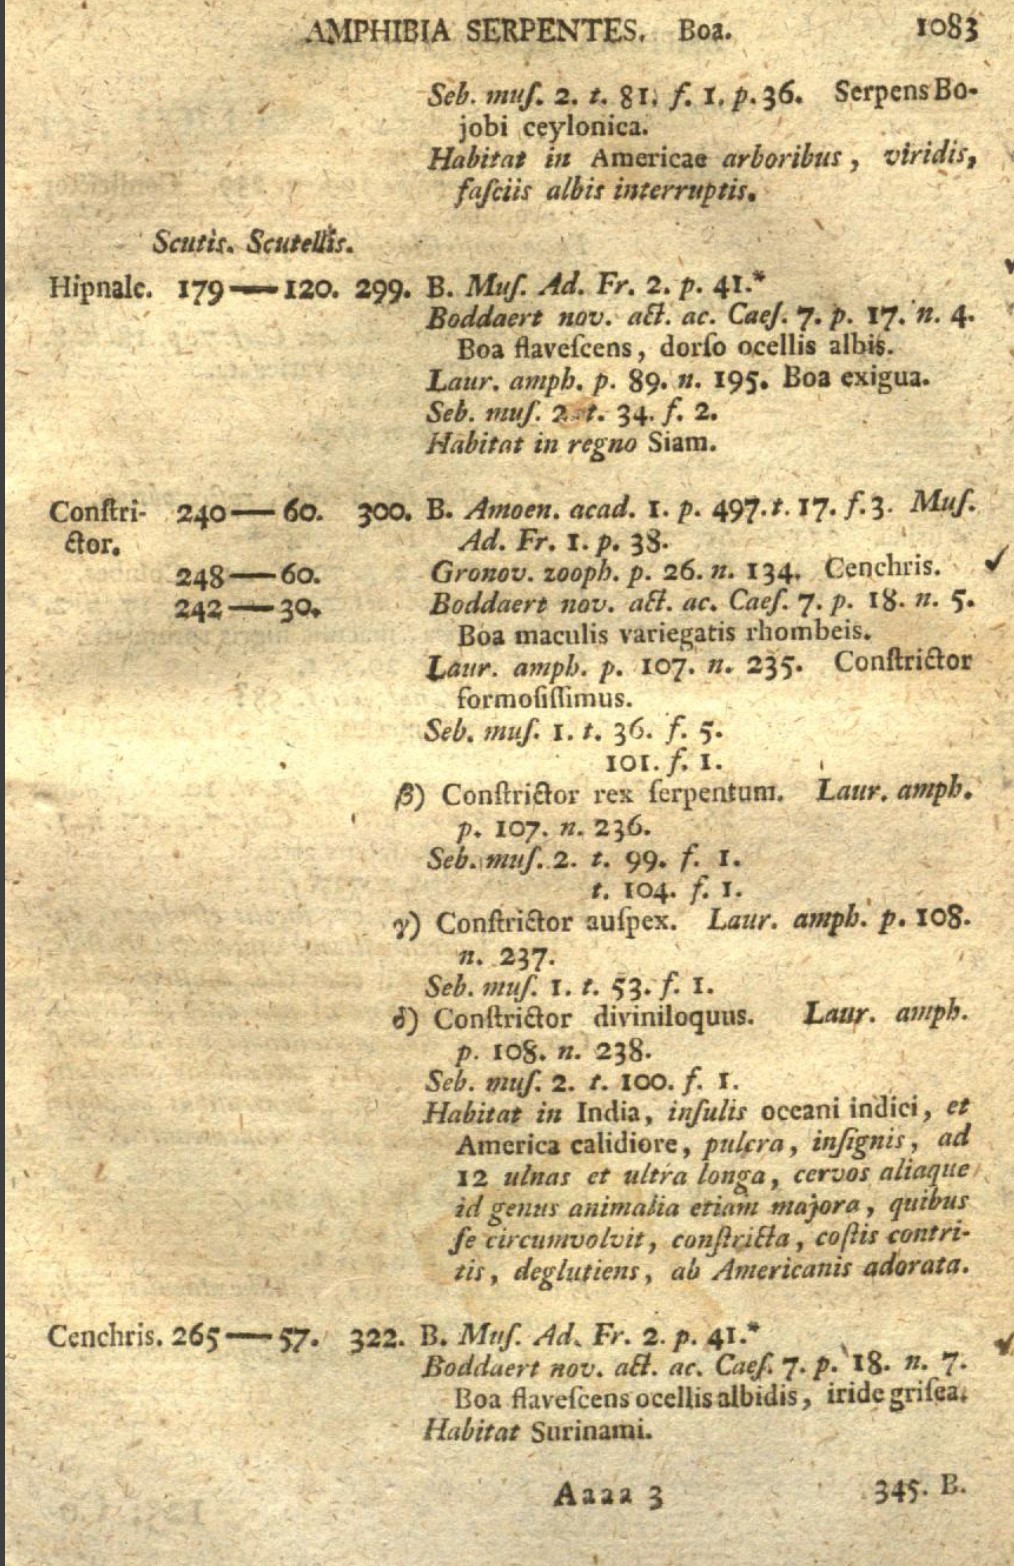 AMPHIBIA SERPENTES. Boa. 1083
Seb. muſ. 2. t. 81. f. 1. p. 36. Serpens Bo-
jobi ceylonica.
Habitat in Americae arboribus, viridis,
faſciis albis interruptis.
Scutis. Scutellis.
Hipnale. 179—120. 299. B. Muſ. Ad. Fr. 2. p. 41.*
Boddaert nov. act. ac. Caeſ. 7. p. 17. n. 4.
Boa flaveſcens, dorſo ocellis albis.
Laur. amph. p. 89. n. 195. Boa exigua.
Seb. muſ. 2. t. 34. f. 2.
Habitat in regno Siam.
Conſtri- 240—60. 300. B. Amoen. acad. 1. p. 497. t. 17. f. 3. Muſ.
ctor. Ad. Fr. 1. p. 38.
248—60. Gronov. zooph. p. 26. n. 134. Cenchris.
242—30. Boddaert nov. act. ac. Caeſ. 7. p. 18. n. 5.
Boa maculis variegatis rhombeis.
Laur. amph. p. 107. n. 235. Conſtrictor
formoſiſſimus.
Seb. muſ. 1. t. 36. f. 5.
101. f. 1.
β) Conſtrictor rex ſerpentum. Laur. amph.
p. 107. n. 236.
Seb. muſ. 2. t. 99. f. 1.
t. 104. f. 1.
γ) Conſtrictor auſpex. Laur. amph. p. 108.
n. 237.
Seb. muſ. 1. t. 53. f. 1.
δ) Conſtrictor diviniloquus. Laur. amph.
p. 108. n. 238.
Seb. muſ. 2. t. 100. f. 1.
Habitat in India, inſulis oceani indici, et
America calidiore, pulcra, inſignis, ad
12 ulnas et ultra longa, cervos aliaque
id genus animalia etiam majora, quibus
ſe circumvolvit, conſtricta, coſtis contri-
tis, deglutiens, ab Americanis adorata.
Cenchris. 265—57. 322. B. Muſ. Ad. Fr. 2. p. 41.*
Boddaert nov. act. ac. Caeſ. 7. p. 18. n. 7.
Boa flaveſcens ocellis albidis, iride griſea.
Habitat Surinami.
Aaaa 3 345. B.